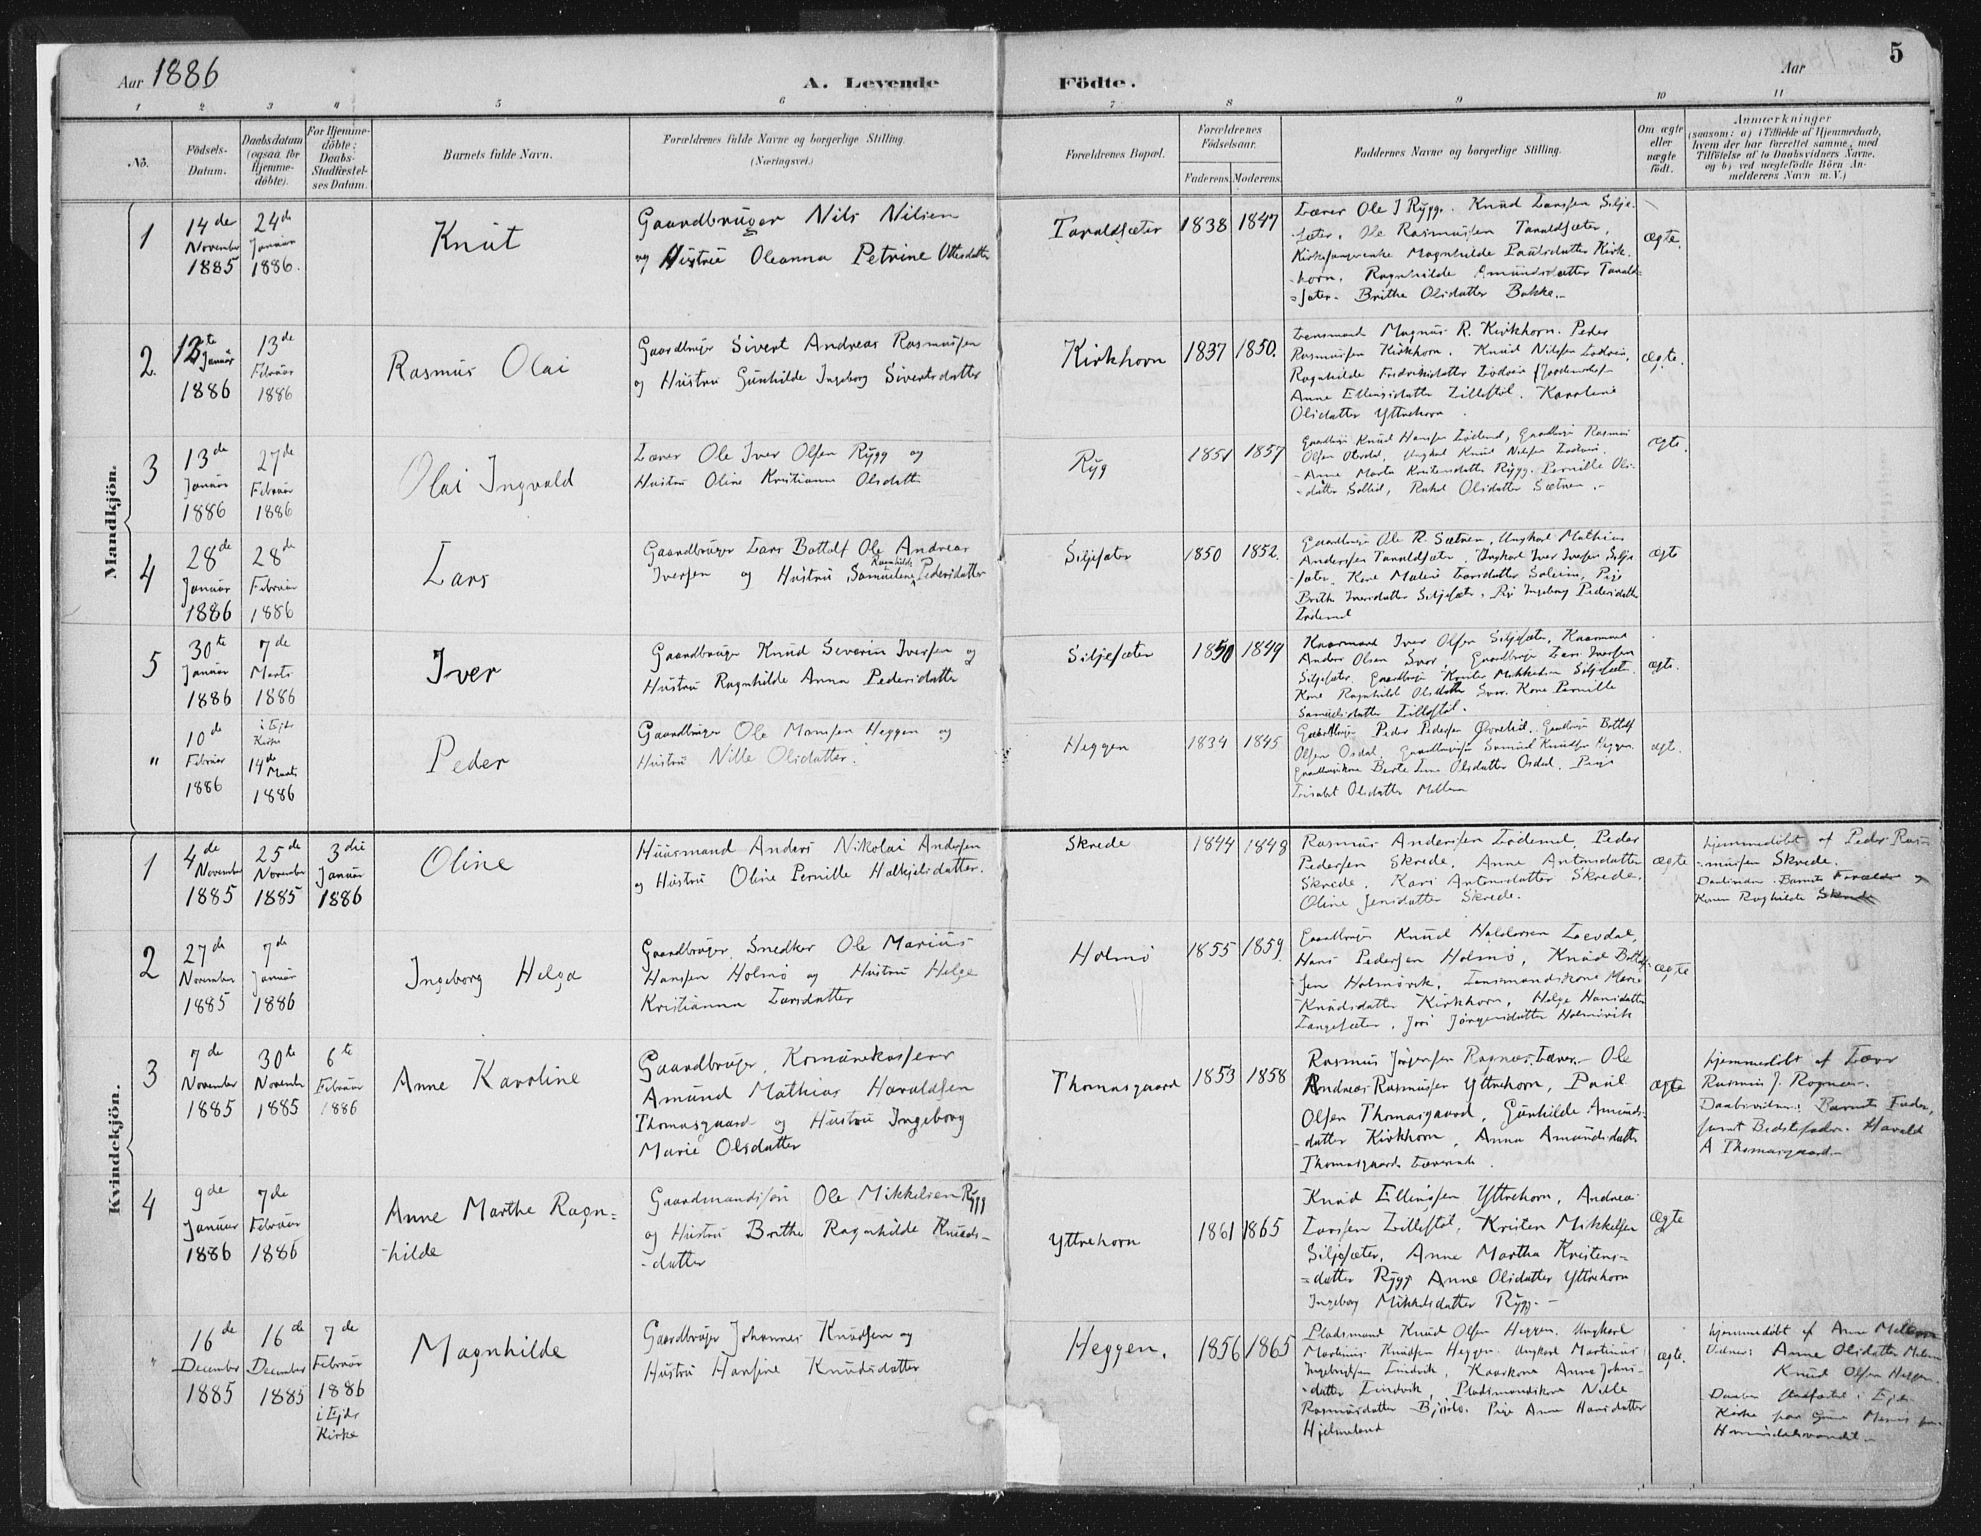 Aar 1886
A. Levende Födte.
Aar
5
1 2 3 4 5 6 7 8 9 10 11
No.
Födsels-Datum.
Daabsdatum (ogsaa for Hjemme-döbte).
For Hjemme-döbte; Daabs-Stadfæstel-ses Datum.
Barnets fulde Navn.
Forældrenes fulde Navne og borgerlige Stilling.
(Næringsvei.)
Forældrenes Bopæl.
Forældrenes Födselsaar.
Faderens. Moderens.
Faddernes Navne og borgerlige Stilling.
Om ægte eller uægte födt.
Anmærkninger
(saasom: a) i Tilfælde af Hjemmedaab,
hvem der har forrettet samme, med
Tilföielse af to Daabsvidners Navne,
og b) ved uægtefödte Börn An-
melderens Navn m. V.)
Mandkjön.
1
14de November 1885
24de Januar 1886.
Knut
Gaardbruger Nils Nilsen
og Hustru Oleanna Petrine Ottesdatter
Taraldsæter
1838 1847
Lærer Ole J Rygg. Knud Larssen Silje-
sæter, Ole Rasmussen Taraldsæter,
Kirkesangerenke Magnhilde Paulsdatter Kirk-
horn. Ragnhilde Amundsdatter Tarald-
sæter. Brithe Olsdatter Bakke.
ægte.
2.
12te Januar 1886
13de Februar 1886
Rasmus Olai
Gaardbruger Sivert Andreas Rasmussen
og Hustru Gunhilde Ingeborg Sivertsdatter
Kirkhorn
1837 1850.
Lensmand Magnus R. Kirkhorn. Peder
Rasmussen Kirkhorn. Knud Nilssen
Ragnhilde Fredriksdatter
Anne Ellingsdatter Lillestöl. Karoline
Olsdatter Yttrehorn.
ægte.
3
13de Januar 1886
27de Februar 1886
Olai Ingvald
Lærer Ole Iver Olsen Rygg og
Hustru Oline Kristianne Olsdatter
Ryg
1851 1857
Gaardbruger Knud Hanssen Lödemel, Gaardbruger Rasmus
Olsen Ungkarl Knud Nilssen
Anne Marta Kristensdatter Rygg. Pernille Ols-
datter Rakel Olsdatter Sætren.
ægte.
4
28de Januar 1886
28de Februar 1886
Lars
Gaardbruger Lars Bottolf Ole Andreas
Iversen og Hustru Samueline Ragnhilde Pedersdatter
Siljesæter
1850 1852.
Gaardbruger Ole R. Sætren, Ungkarl Mathias
Anderssen Taraldsæter, Ungkarl Iver Iversen Silje-
sæter. Kone Malene Larsdatter Solem, Pige
Brith Iversdatter Siljesæter. Pi. Ingeborg Pedersdatter
Lödemel
ægte
5
30te Januar 1886
7de Marts 1886
Iver
Gaardbruger Knud Severin Iversen og
Hustru Ragnhilde Anna Pedersdatter
Siljesæter
1850 1849
Kaarmand Iver Olsen Siljesæter, Kaarmand
Anders Olsen Svor, Gaardbruger Lars Iversen
Siljesæter. Gaardbruger Kristen Mikkelsen Siljesæter.
Kone Ragnhilde Olsdatter Svor. Kone Pernille
Samuelsdatter Lillestöl.
ægte.
"
10de Februar 1886
i Ejds Kirke 14de Marts 1886
Peder
Gaardbruger Ole Monsen Heggen og
Hustru Nille Olsdatter.
Heggen
1834 1845
Gaardbruger Peder Pedersen Gaardbruger Bottolf
Olsen Osdal, Gaardbruger Samuel Knudsen Heggen.
Gaardbrugerkone Berte Lene Olsdatter Osdal. Pige
Lisabet Olsdatter Mellem
ægt.
Kvindekjön.
1
4de November 1885
25de November 1885
3die Januar 1886
Oline
Huusmand Anders Nikolai Andersen
og Hustru Oline Pernille Halkjelsdatter.
Skrede
1844 1848
Rasmus Anderssen Lödemel, Peder
Pedersen Skrede, Anne Antonsdatter
Skrede. Kari Antonsdatter Skrede.
Oline Jensdatter Skrede.
ægte
hjemmedöbt af Peder Ras-
mussen Skrede.
Daabsvidner Barnets Forældre og
Konen Raghilde Skrede
2
27de November 1885
7de Januar 1886
Ingeborg Helga
Gaardbruger, Snedker Ole Marius
Hanssen Holmö og Hustru Helge
Kristianna Larsdatter
Holmö
1855 1859
Gaardbruger Knud Haldorsen Loevdal,
Hans Pedersen Holmö, Knud Bottolf-
sen Holmövik, Lensmandskone Marie
Knudsdatter Kirkhorn, Helge Hansdatter
Langesæter, Jori Jørgensdatter Holmövik
ægte
3
7de November 1885
30te November 1885
6te Februar 1886
Anne Karoline
Gaardbruger, Komunekasserer
Amund Mathias Haraldsen
Thomasgaard og Hustru Ingeborg
Marie Olsdatter
Thomasgaard
1853 1858
Rasmus Jörgensen Ragnes, Lærer. Ole
Andreas Rasmussen Yttrehorn, Paul
Olsen Thomasgaard, Gunhilde Amunds-
datter Kirkhorn, Anna Amundsdatter
Thomasgaard Lærerenke.
ægte
hjemmedöbt af Lærer
Rasmus J. Rognes.
Daabsvidner: Barnets Fader,
samt Bedstefader Harald
A Thomasgaard.
4
9de Januar 1886
7de Februar 1886
Anne Marthe Ragn-
hilde
Gaardmandssön Ole Mikkelsen Rygg
og Hustru Brithe Ragnhilde Knuds-
datter
Yttrehorn
1861 1865
Knud Ellingsen Yttrehorn, Andreas
Larssen Lillestöl, Kristen Mikkelsen
Siljesæter, Anne Martha Kristens-
datter Rygg Anne Olsdatter Yttrehorn
Ingeborg Mikkelsdatter Rygg.
ægte
"
16de December 1885
16de December 1885
7de Februar 1886 i Ejds Kirke
Magnhilde
Gaardbruger Johannes Knudsen og
Hustru Hansine Knudsdatter
Heggen.
1856 1865
Pladsmand Knud Olsen Heggen. Ungkarl
Martinus Knudsen Heggen. Ungkarl Martinus
Ingebrigtsen Lindvik, Kaarkone Anne Johns-
datter Lindvik, Pladsmandskone Nille
Rasmusdatter Pige Anne Hansdatter
Hjelmeland
ægte.
hjemmedöbt af Anne Mellem
Vidner: Anne Olsdatter Mellem
Knud Olsen Heggen.
Daaben stadfæstet i Ejds
Kirke